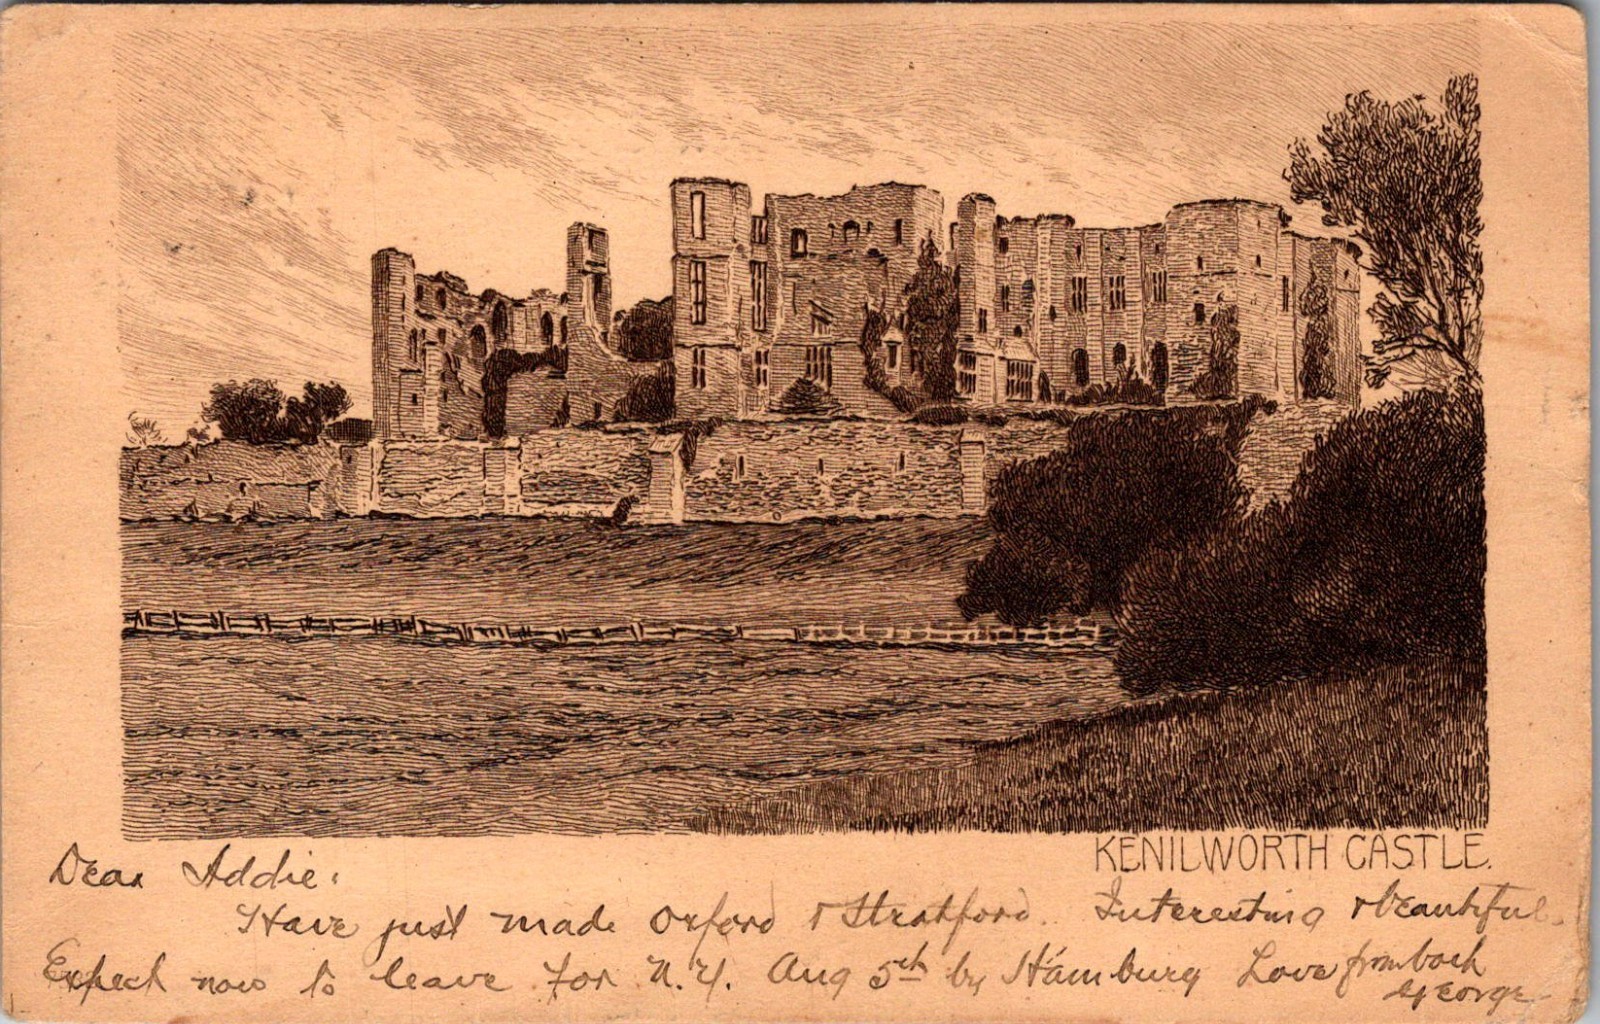 KENILWORTH CASTLE.
Dear Addie:
Have just made Oxford & Stratford. Interesting & beautiful.
Expect now to leave for N.Y. Aug 5th by Hamburg Love from both
George